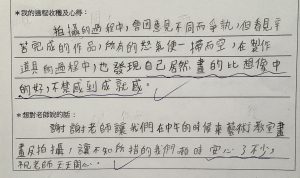 *我的過程收穫及心得:
拍攝的過程中,曾因意見不同而爭執,但看見辛
苦完成的作品,所有的怨氣便一掃而空,在製作
道具的過程中,也發現自己居然畫的比想像中
的好,不禁感到成就感。
*想對老師說的話:
謝謝老師讓我們在中午的時候來藝術教室畫
畫及拍攝,讓不知所措的我們頓時安心了不少,
祝老師天天開心。